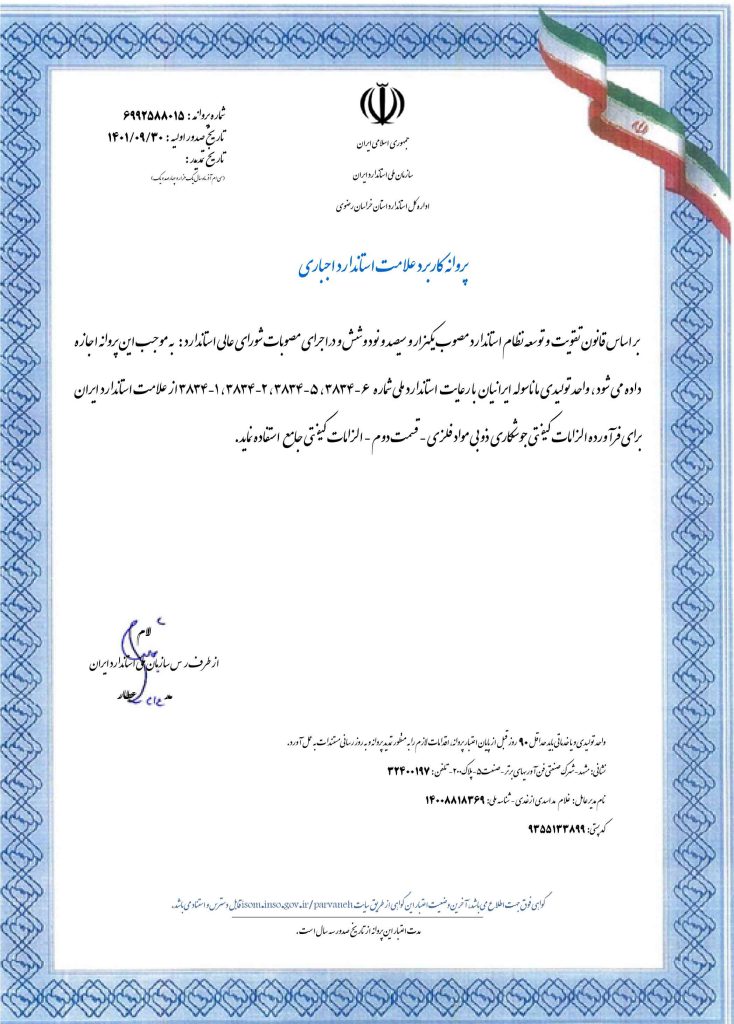 جمهوری اسلامی ایران
سازمان ملی استاندارد ایران
اداره کل استاندارد استان خراسان رضوی
شماره پروانه : ۶۹۹۲۵۸۸۰۱۵
تاریخ صدور اولیه : ۱۴۰۱/۰۹/۳۰
تاریخ تمدید :
(سی ام آذر ماه سال یک هزار و چهارصد و یک)
پروانه کاربرد علامت استاندارد اجباری
بر اساس قانون تقویت و توسعه نظام استاندارد مصوب یکهزار و سیصد و نود و شش و در اجرای مصوبات شورای عالی استاندارد : به موجب این پروانه اجازه
داده می شود ، واحد تولیدی مانا سوله ایرانیان با رعایت استاندارد ملی شماره ۶-۳۸۳۴ ، ۵-۳۸۳۴ ، ۲-۳۸۳۴ ، ۱-۳۸۳۴ از علامت استاندارد ایران
برای فرآورده الزامات کیفیتی جوشکاری ذوبی مواد فلزی - قسمت دوم - الزامات کیفیتی جامع استفاده نماید.
از طرف سازمان ملی استاندارد ایران
عطار
واحد تولیدی و یا خدماتی باید حداقل ۹۰ روز قبل از پایان اعتبار پروانه، اقدامات لازم را به منظور تمدید پروانه و به روز رسانی مستندات به عمل آورد.
نشانی : مشهد-شهرک صنعتی فن آوریهای برتر-صنعت ۵-پلاک ۲۰۰- تلفن : ۳۲۴۰۰۱۹۷
نام مدیر عامل : غلام اسدی ازغدی - شناسه ملی: ۱۴۰۰۸۸۱۸۳۶۹
کد پستی: ۹۳۵۵۱۳۳۸۹۹
گواهی فوق جهت اطلاع می باشد، آخرین وضعیت اعتبار این گواهی از طریق سایت isom.inso.gov.ir/parvaneh قابل دسترس و استناد می باشد.
مدت اعتبار این پروانه از تاریخ صدور سه سال است.